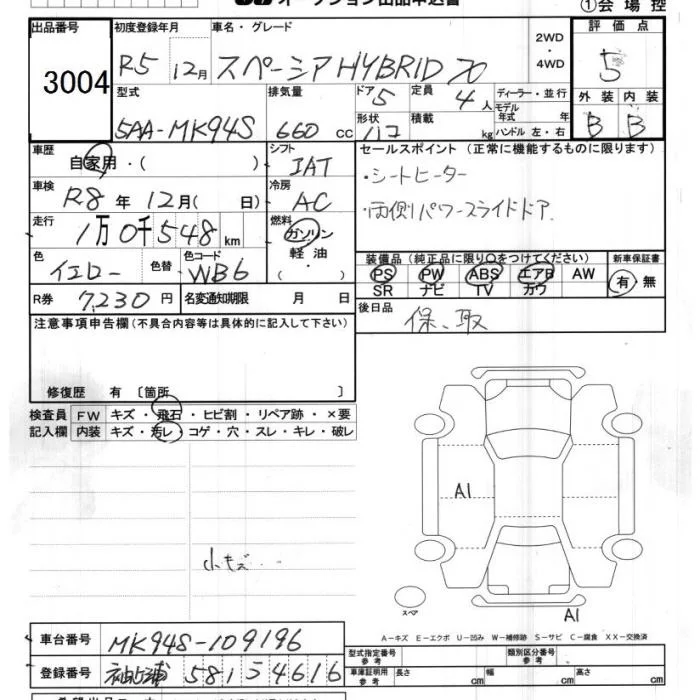 オークション出品申込書
①会場控
出品番号
3004
初度登録年月
R5 12月
車名・グレード
スペーシアHYBRID
2WD
・
4WD
評価点
5
型式
5AA-MK94S
排気量
660 cc
ドア
5
形状
定員
4人
積載
kg
ディーラー・並行
モデル
年式 年
ハンドル 左・右
外装 内装
B B
車歴
自家用・( )
シフト
IAT
セールスポイント (正常に機能するものに限ります)
・シートヒーター
・両側パワースライドドア.
車検
R8年12月( 日)
冷房
AC
走行
1万0千548km
燃料
ガソリン
軽油
・
( )
色
イエロー
色替
色コード
WB6
装備品 (純正品に限り○をつけてください)
PS PW ABS エアB AW
SR ナビ TV カワ
新車保証書
有・無
R券
7,230円
名変通知期限 月 日
後日品
保、取
注意事項申告欄(不具合内容等は具体的に記入して下さい)
修復歴 有 〔箇所 〕
検査員
記入欄
FW キズ・飛石・ヒビ割・リペア跡・×要
内装 キズ・汚レ・コゲ・穴・スレ・キレ・破レ
小キズ...
A1
A1
スペア
A-キズ E-エクボ U-凹み W-補修跡 S-サビ C-腐食 XX-交換済
車台番号
MK94S-109196
登録番号
袖ヶ浦 581 う 4616
型式指定番号
参考
類別区分番号
参考
車庫証明用
参考
長さ cm
幅 cm
高さ cm